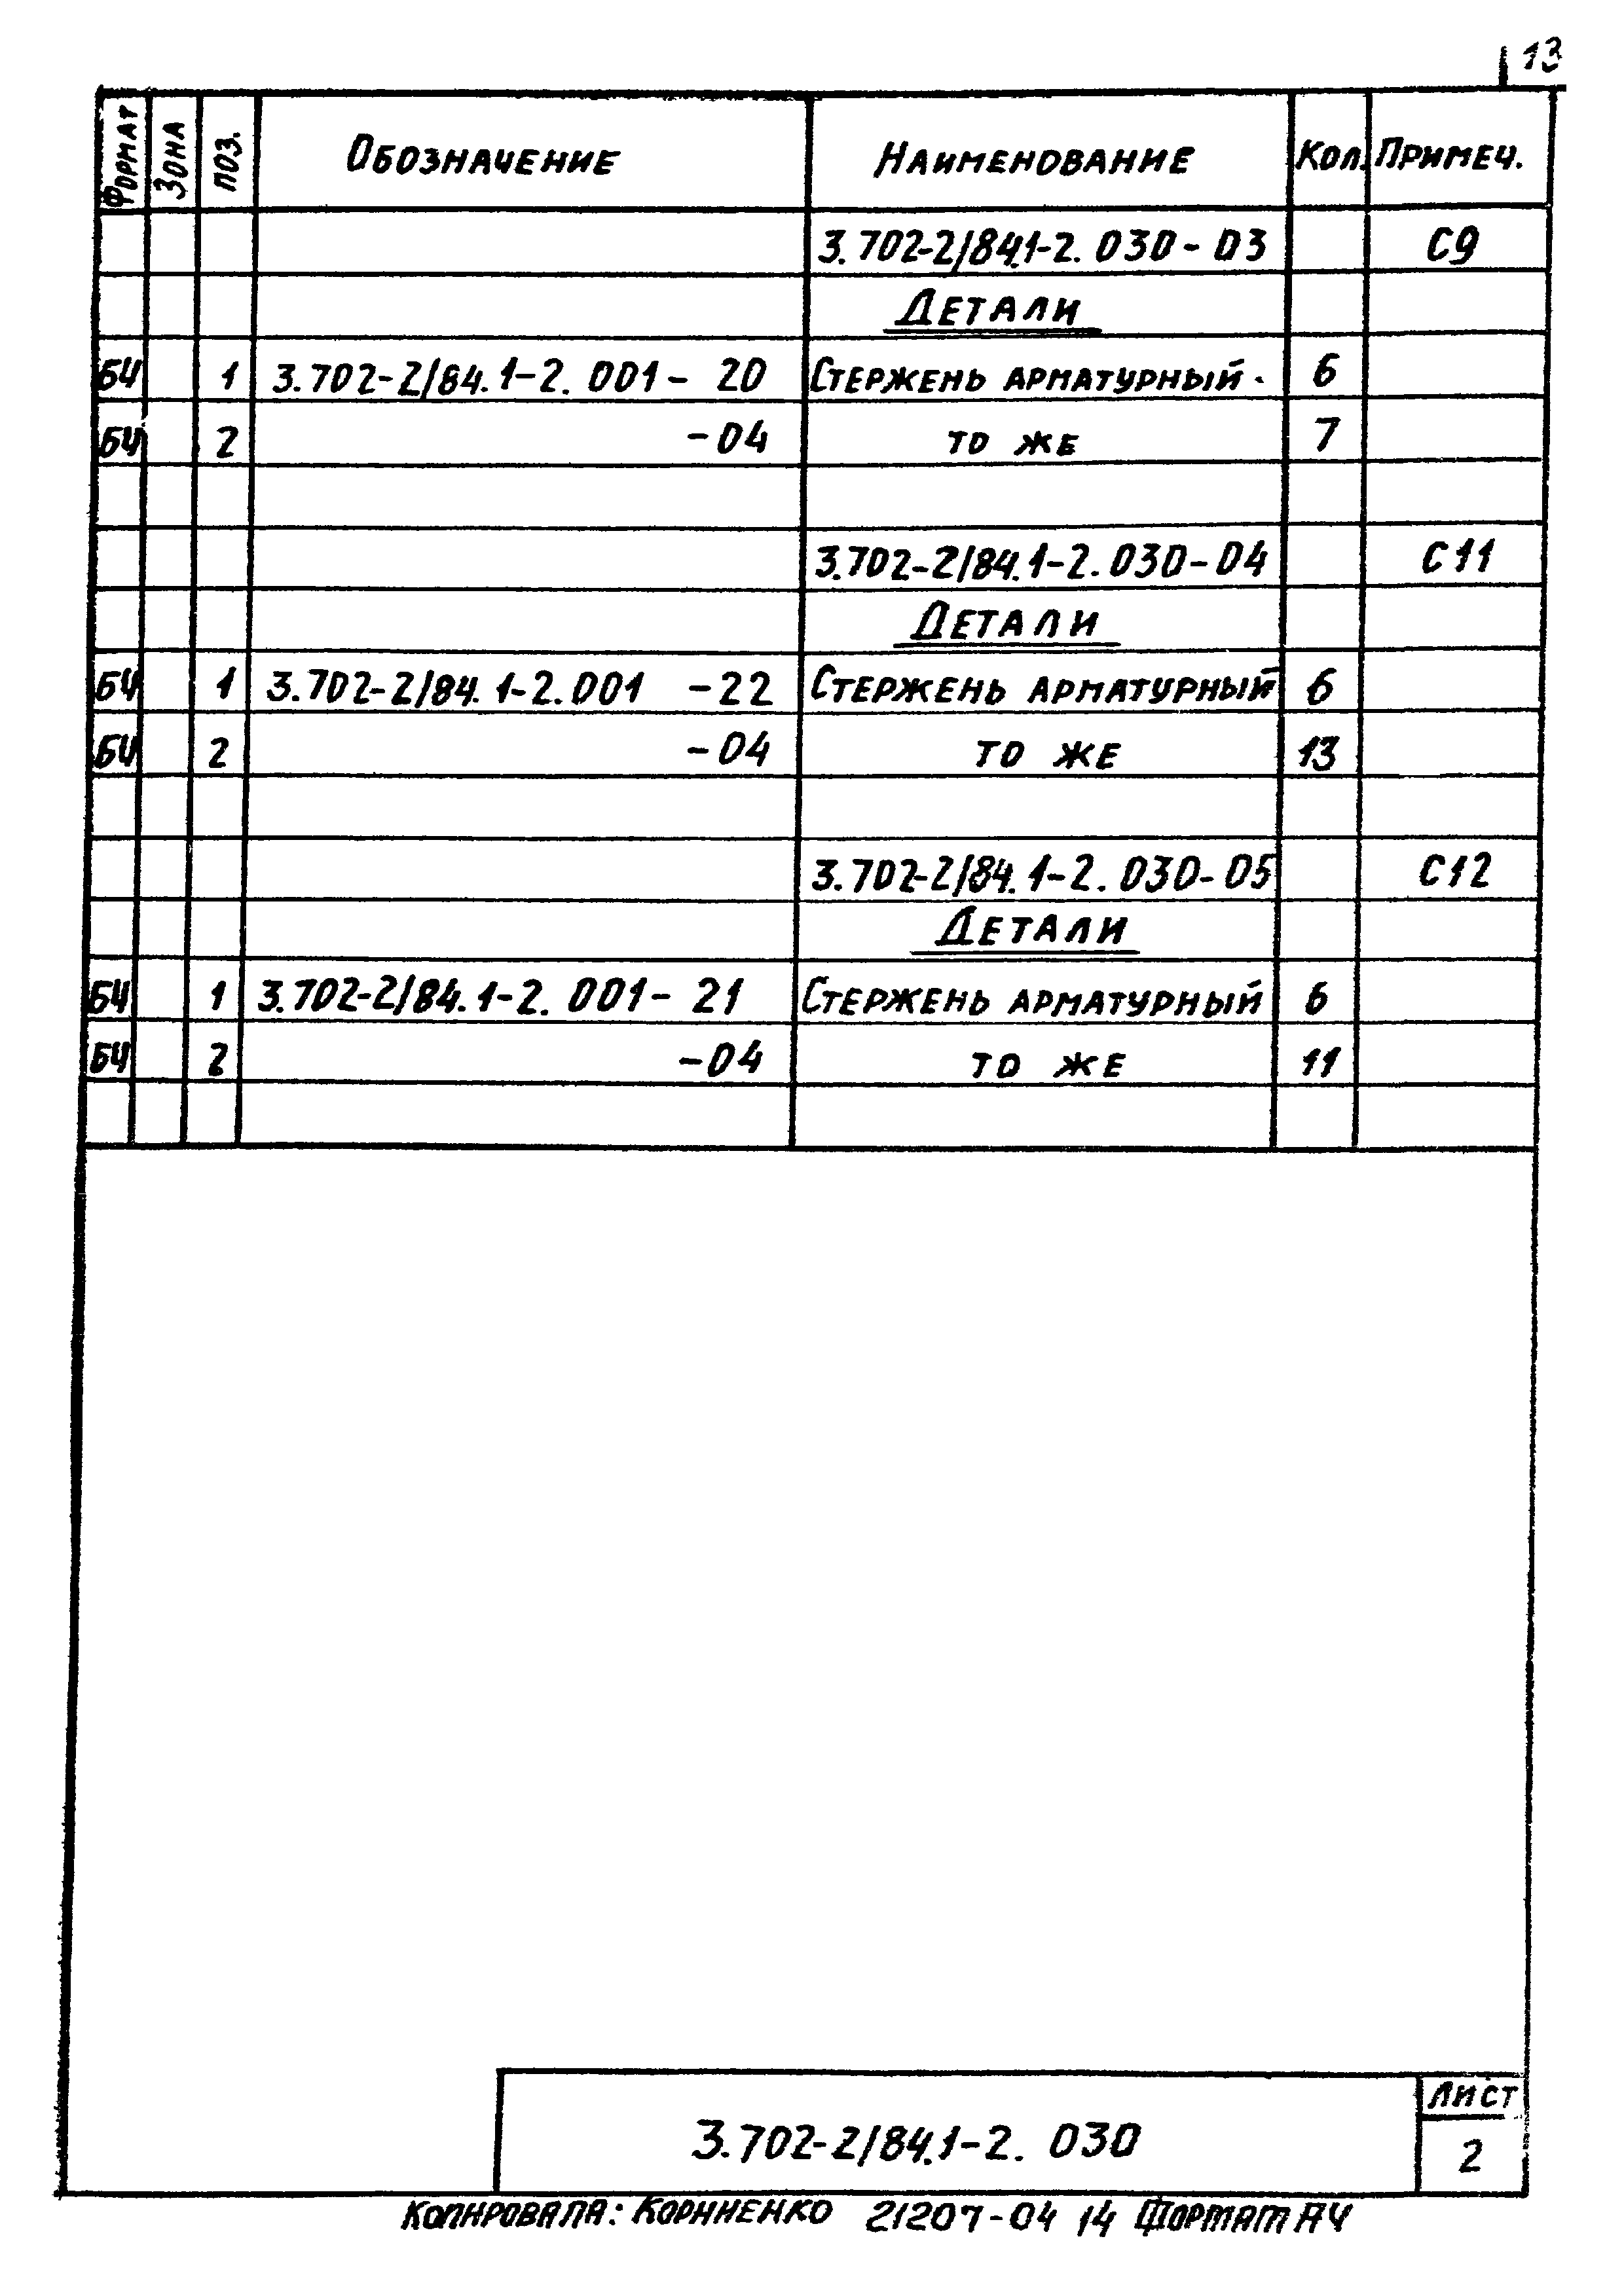 13
Формат Зона Поз. Обозначение Наименование Кол. Примеч.
3.702-2/84.1-2.030-03 С9
Детали
БЧ 1 3.702-2/84.1-2.001-20 Стержень арматурный 6
БЧ 2 -04 то же 7
3.702-2/84.1-2.030-04 С11
Детали
БЧ 1 3.702-2/84.1-2.001 -22 Стержень арматурный 6
БЧ 2 -04 то же 13
3.702-2/84.1-2.030-05 С12
Детали
БЧ 1 3.702-2/84.1-2.001-21 Стержень арматурный 6
БЧ 2 -04 то же 11
3.702-2/84.1-2.030
Лист
2
Копировала: Корниенко 21207-04 14 Формат А4